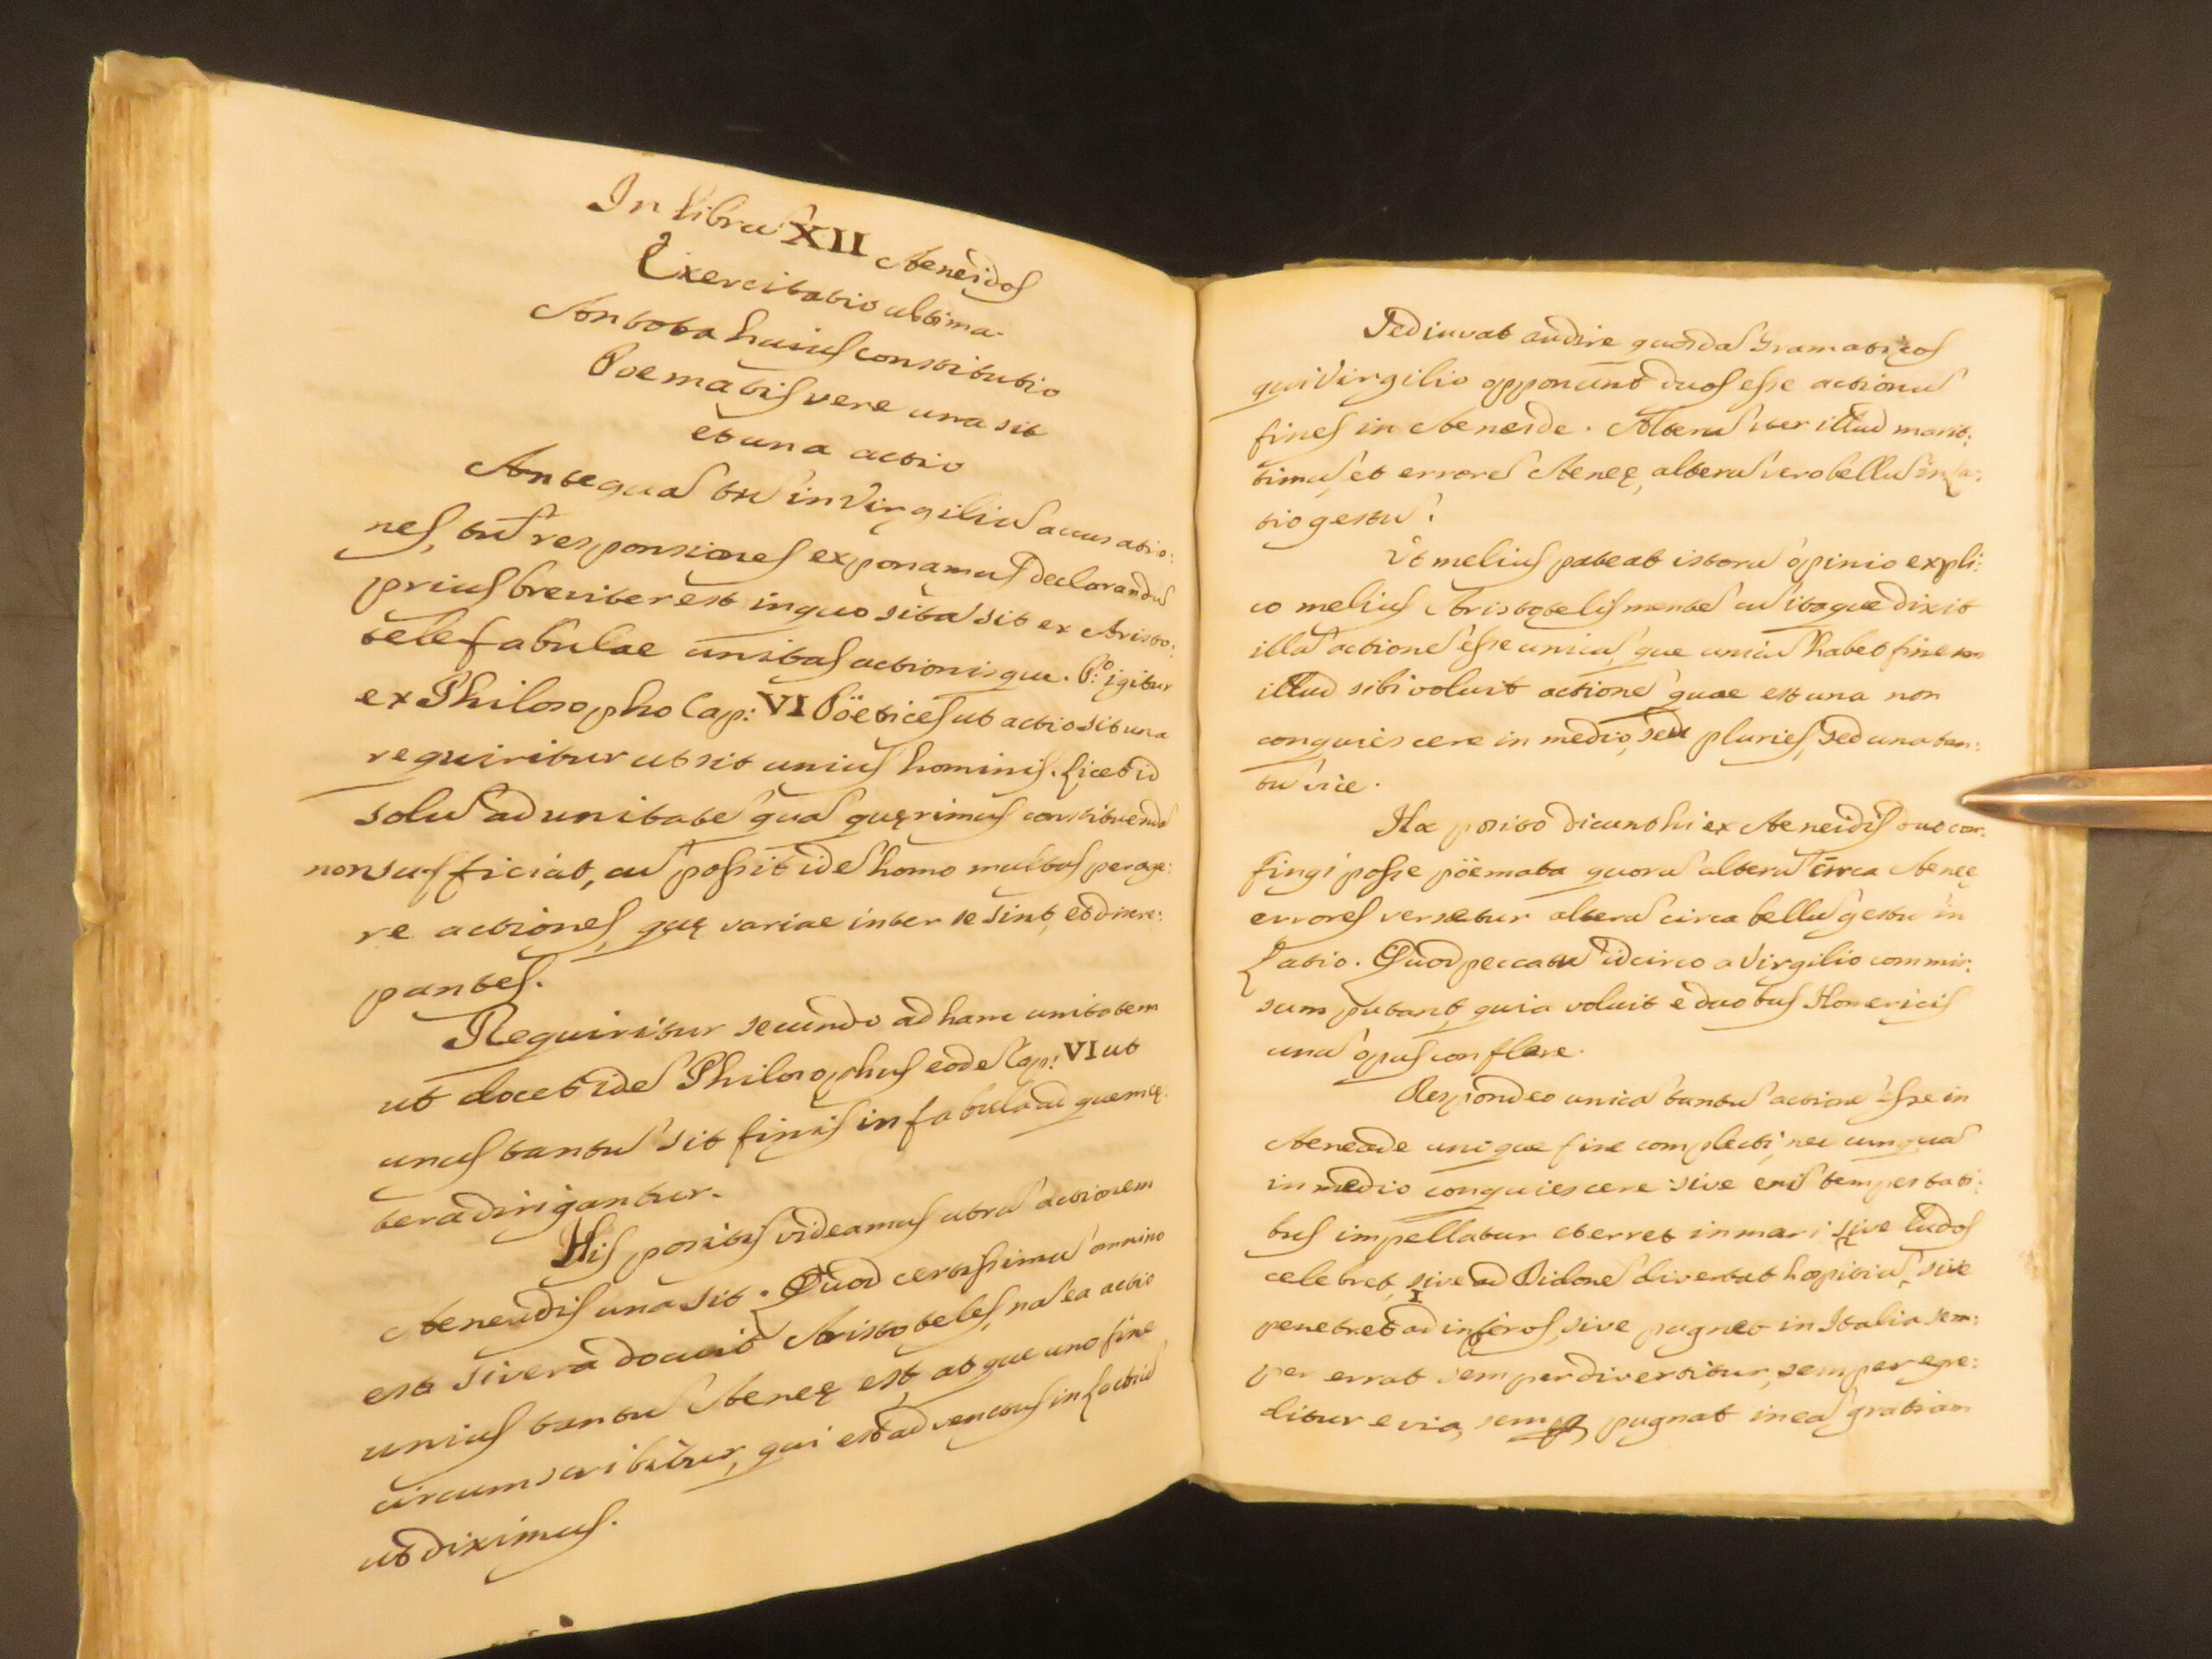 In librũ XII Aeneidos
Exercitatio ultima.
An tota huius constitutio
Poematis vere una sit
et una actio
Antequã tũ in Virgiliũ accusatio:
nes, tũ responsiones exponamus declarandũ
prius breviter est in quo sita sit ex Aristo:
tele fabulae unitas actionisque. P.º igitur
ex Philosopho Cap: VI Pöetices ut actio sit una
requiritur ut sit unius hominis. licet id
solũ ad unitatẽ quã quęrimus constituendã
non sufficiat, cũ possit idẽ homo multas perage:
re actiones, quę variae inter se sint, et discre:
pantes.
Requiritur secundo ad hanc unitatem
ut docet idẽ Philosophus eodẽ Cap: VI ut
unus tantũ sit finis in fabula ad quem cę:
tera dirigantur.
His positis videamus utrũ actionem
Aeneidis una sit. Quod certissimũ omnino
est si vera docuit Aristoteles, nã ea actio
unius tantũ Aeneę est, atque uno fine
circumscribitur, qui est adventus in Latiũ
ut diximus.
Sed iuvat audire quosdã Gramaticos
qui Virgilio opponunt duos esse actionũ
fines in Aeneide. Alterũ iter illud marit:
timũ, et errorẽ Aeneę, alterũ vero bellũ in La:
tio gestũ.
Vt melius pateat istorũ opinio expli:
co melius Aristotelis mentẽ cũ itaque dixit
illã actionẽ esse unicã, que unicũ habet finem
illud sibi voluit actionẽ quae est una non
conquiescere in medio, seu pluries, sed una tan:
tũ vice.
Hoc posito dicunt hi ex Aeneidis duo con:
fingi posse pöemata quorũ alterũ circa Aeneę
errores versetur alterũ circa bellũ gestũ in
Latio. Quod peccatũ idcirco a Virgilio commis:
sum putant, quia voluit e duobus Homericis
unũ opus conflare.
Respondeo unicã tantũ actionẽ esse in
Aeneade unique fine complecti, nec unquã
in medio conquiescere sive enĩ tempestati:
bus impellatur et erret in mari sive ludos
celebret, sive ad Didonẽ divertat hospitiũ, sive
penetret ad inferos, sive pugnet in Italia sem:
per errat semper divertitur, semper egre:
ditur e via, semp pugnat in eã gratiam